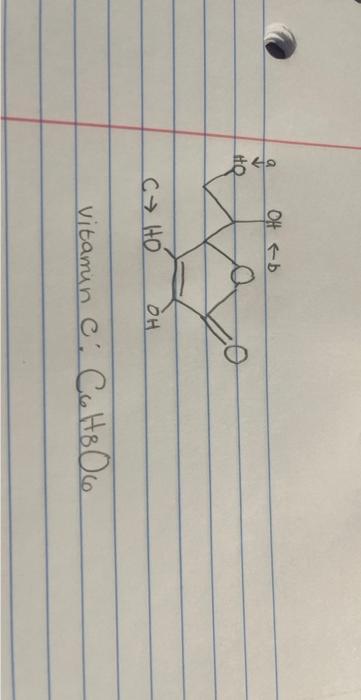 a
HO ↓
OH ← b
O
O
C → HO
OH
Vitamin C: C6H8O6